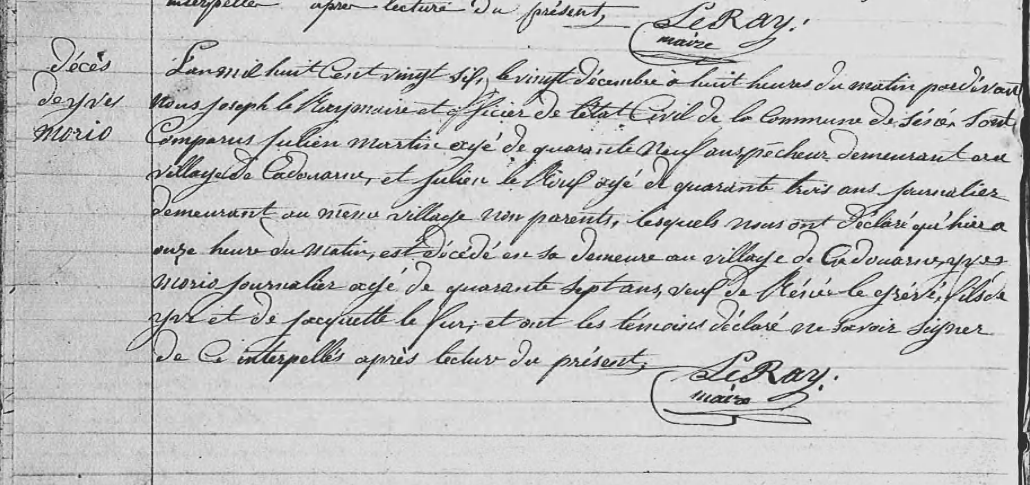 interpellés après lecture du présent,
LeRay.
maire
décès
de yves
morio
L'an mil huit Cent vingt six, le vingt décembre à huit heures du matin pardevant
nous joseph le Ray maire et officier de l'état Civil de la Commune de Séné, Sont
Comparus julien martin agé de quarante neuf ans, pêcheur demeurant au
village de Cadouarne, et julien le agé de quarante trois ans journalier
demeurant au même village non parents, lesquels nous ont déclaré qu'hier a
onze heure du matin, est décédé en sa demeure au village de Cadouarne, yves
morio journalier agé de quarante sept ans, veuf de Rénée le gréve, fils de
yve et de jacquette le fur, et ont les témoins déclaré ne savoir signer
de ce interpellés après lecture du présent,
LeRay.
maire